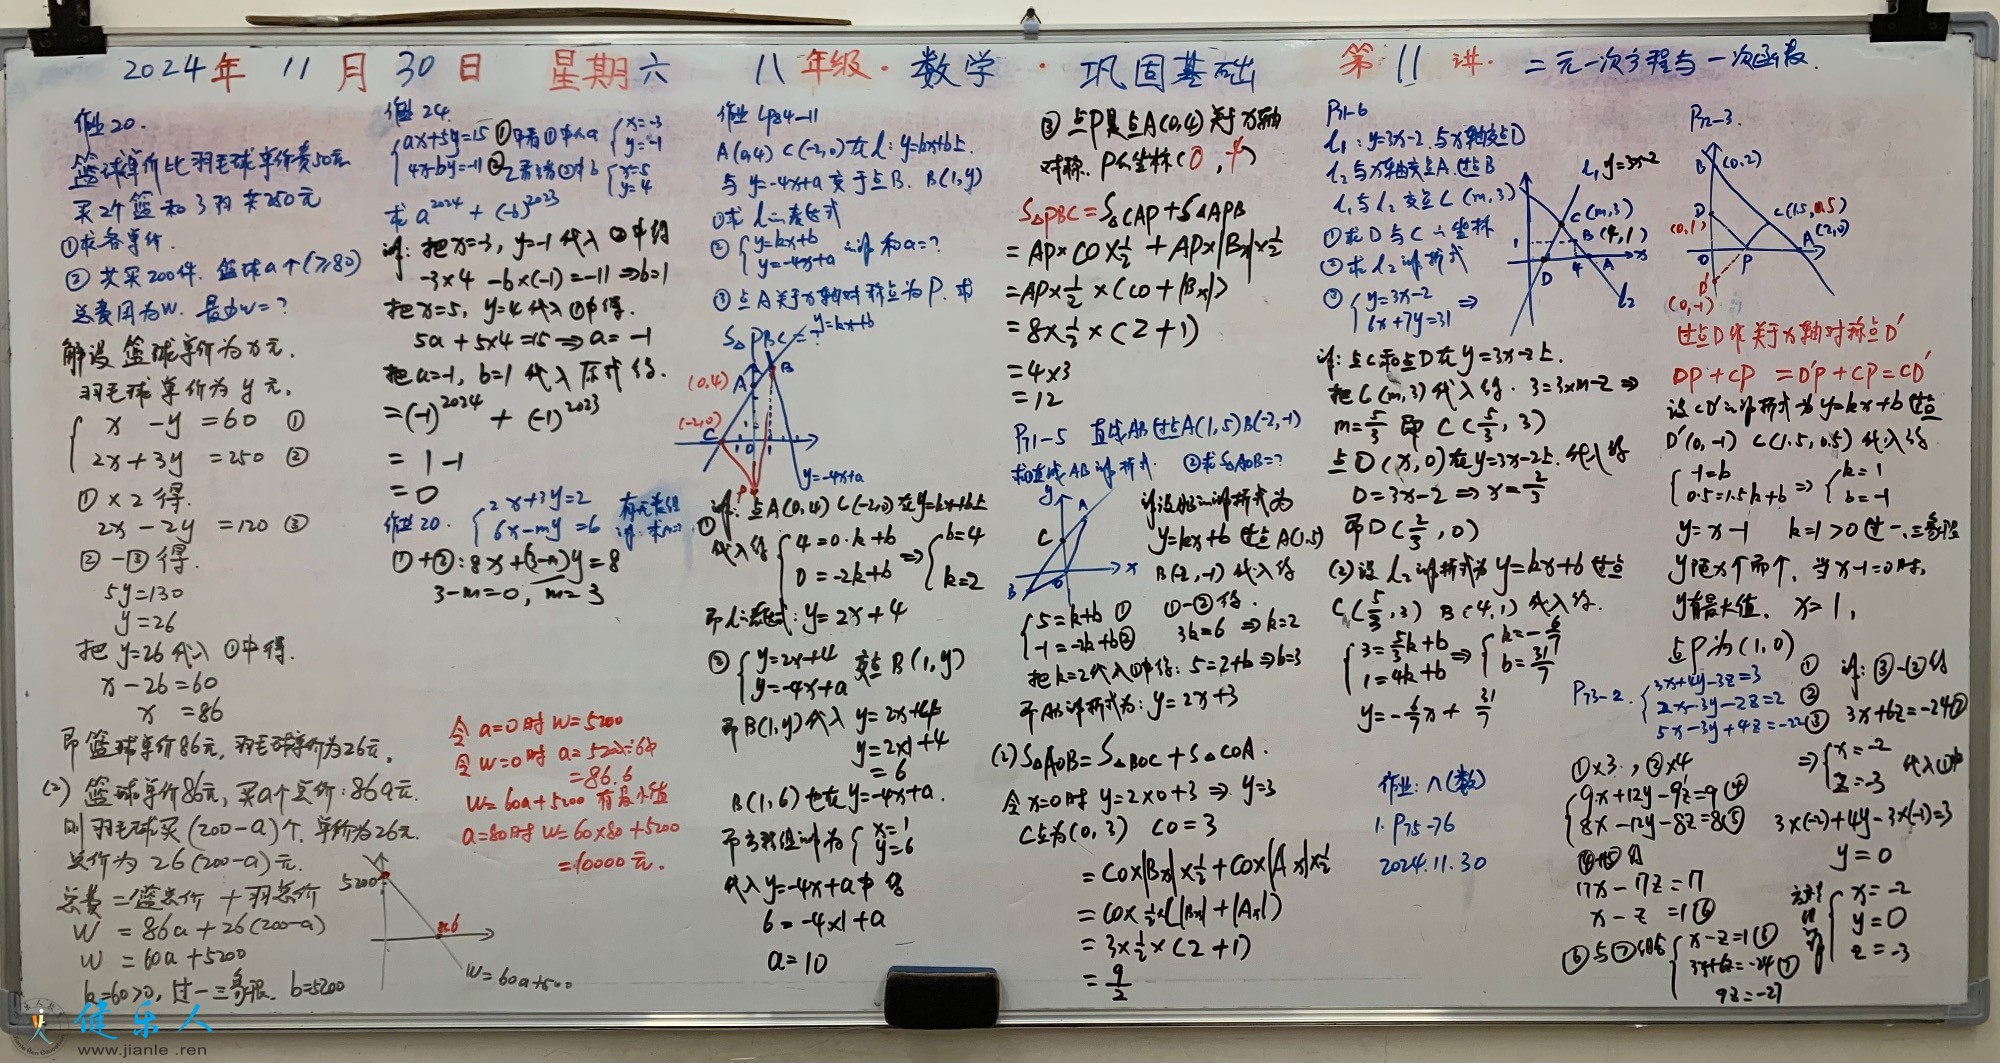 2024年 11月 30日 星期六 八年级·数学·巩固基础 第11讲·二元一次方程与一次函数.
作业20.
篮球单价比羽毛球单价贵50元
买2个篮和3羽共250元
①求各单价.
②共买200件. 篮球a个(≥80)
总费用为W. 最少w=?
解设篮球单价为x元.
羽毛球单价为y元.
x - y = 60 ①
2x + 3y = 250 ②
①×2得.
2x - 2y = 120 ③
②-③得.
5y=130
y=26
把y=26代入①中得.
x-26=60
x =86
即篮球单价86元, 羽毛球单价为26元.
(2) 篮球单价86元, 买a个总价:86a元.
则羽毛球买(200-a)个, 单价为26元.
总价为26(200-a)元.
总费=篮总价+羽总价
W = 86a+26(200-a)
W = 60a+5200
k=60>0, 过一三象限. b=5200
5200
86.6
W=60a+5200
作业24.
ax+5y=15 ① 甲看①中a
x=-3
y=-1
4x-by=-11 ② 乙看②中b
x=5
y=4
求 a²⁰²⁴+(-b)²⁰²³
解: 把x=-3, y=-1代入②中得
-3×4-b×(-1)=-11⇒b=1
把x=5, y=4代入①中得.
5a+5×4=15⇒a=-1
把a=-1, b=1代入原式得.
=(-1)²⁰²⁴+(-1)²⁰²³
=1-1
=0
作业20.
2x+3y=2
6x-my=6
有无数组
解. 求m=?
①+②:8x+(3-m)y=8
3-m=0, m=3
令a=0时W=5200
令w=0时 a=5200÷60
=86.6
W=60a+5200 有最小值
a=80时 W=60×80+5200
=10000元.
作业 4P84-11
A(0,4) C(-2,0)在l:y=kx+b上.
与y=-4x+a交于点B. B(1,y)
①求l的表达式
② y=kx+b
y=-4x+a 的解和a=?
③点A关于x轴对称点为P. 求
S△PBC=?
y=kx+b
(0,4)
A
B
(-2,0)
C
0
P
y=-4x+a
①解:点A(0,4) C(-2,0)在y=kx+b上
代入得
4=0·k+b
0=-2k+b
⇒
b=4
k=2
即l的表达式:y=2x+4
② y=2x+4
y=-4x+a 交点B(1,y)
即B(1,y)代入 y=2x+4
y=2×1+4
=6
B(1,6)也在y=-4x+a.
即方程组解为
x=1
y=6
代入y=-4x+a中得
6=-4×1+a
a=10
③点P是点A(0,4)关于x轴
对称. P的坐标(0,-4)
S△PBC=S△CAP+S△APB
=AP×CO×½+AP×|Bx|×½
=AP×½×(CO+|Bx|)
=8×½×(2+1)
=4×3
=12
P71-5 直线AB过点A(1,5)B(-2,-1)
求①直线AB解析式. ②求S△AOB=?
y
A
C
x
B
0
解设AB的解析式为
y=kx+b过点A(1,5)
B(-2,-1)代入得
5=k+b ①
-1=-2k+b②
①-②得.
3k=6⇒k=2
把k=2代入①中得:5=2+b⇒b=3
即AB解析式为:y=2x+3
(2)S△AOB=S△BOC+S△COA.
令x=0时 y=2×0+3⇒y=3
C点为(0,3) CO=3
=CO×|Bx|×½+CO×|Ax|×½
=CO×½×(|Bx|+|Ax|)
=3×½×(2+1)
=9/2
P71-6
l₁:y=3x-2.与x轴交点D
l₂与x轴交点A.过点B
l₁与l₂交点C(m,3)
①求D与C的坐标
②求l₂解析式
③ y=3x-2
6x+7y=31
⇒
l₁ y=3x-2
C(m,3)
B(4,1)
1
D
4
A
x
l₂
解:点C和点D在y=3x-2上.
把C(m,3)代入得. 3=3×m-2⇒
m=5/3 即C(5/3,3)
点D(x,0)在y=3x-2上.代入得
0=3x-2⇒x=2/3
即D(2/3,0)
(2)设l₂解析式为y=kx+b过点
C(5/3,3) B(4,1)代入得.
3=5/3k+b
1=4k+b
⇒
k=-6/7
b=31/7
y=-6/7x+31/7
作业:八(数)
1. P75-76
2024.11.30
P72-3.
B(0,2)
D
(0,1)
C(1.5,0.5)
(2,0)
A
0
P
D'
(0,-1)
过点D作关于x轴对称点D'
DP+CP=D'P+CP=CD'
设CD'的解析式为y=kx+b过点
D'(0,-1) C(1.5,0.5)代入得
-1=b
0.5=1.5k+b
⇒
k=1
b=-1
y=x-1 k=1>0过一.三象限
y随x个而个. 当x-1=0时,
y有最大值. x=1,
点P为(1,0)
P73-2.
3x+4y-3z=3 ①
2x-3y-2z=2 ②
5x-3y+4z=-22 ③
解:③-②得
3x+6z=-24⑦
①×3, ②×4
9x+12y-9z=9 ④
8x-12y-8z=8⑤
④+⑤得
17x-17z=17
x-z=1⑥
⑥与⑦组
x-z=1⑥
3x+6z=-24⑦
9z=-27
⇒
x=-2
z=-3
代入①中
3×(-2)+4y-3×(-3)=3
y=0
方程组解
x=-2
y=0
z=-3
健乐人
www.jianle.ren